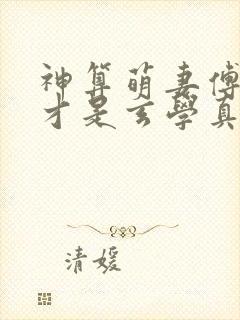 神算萌妻傅
才是玄學真
清媛